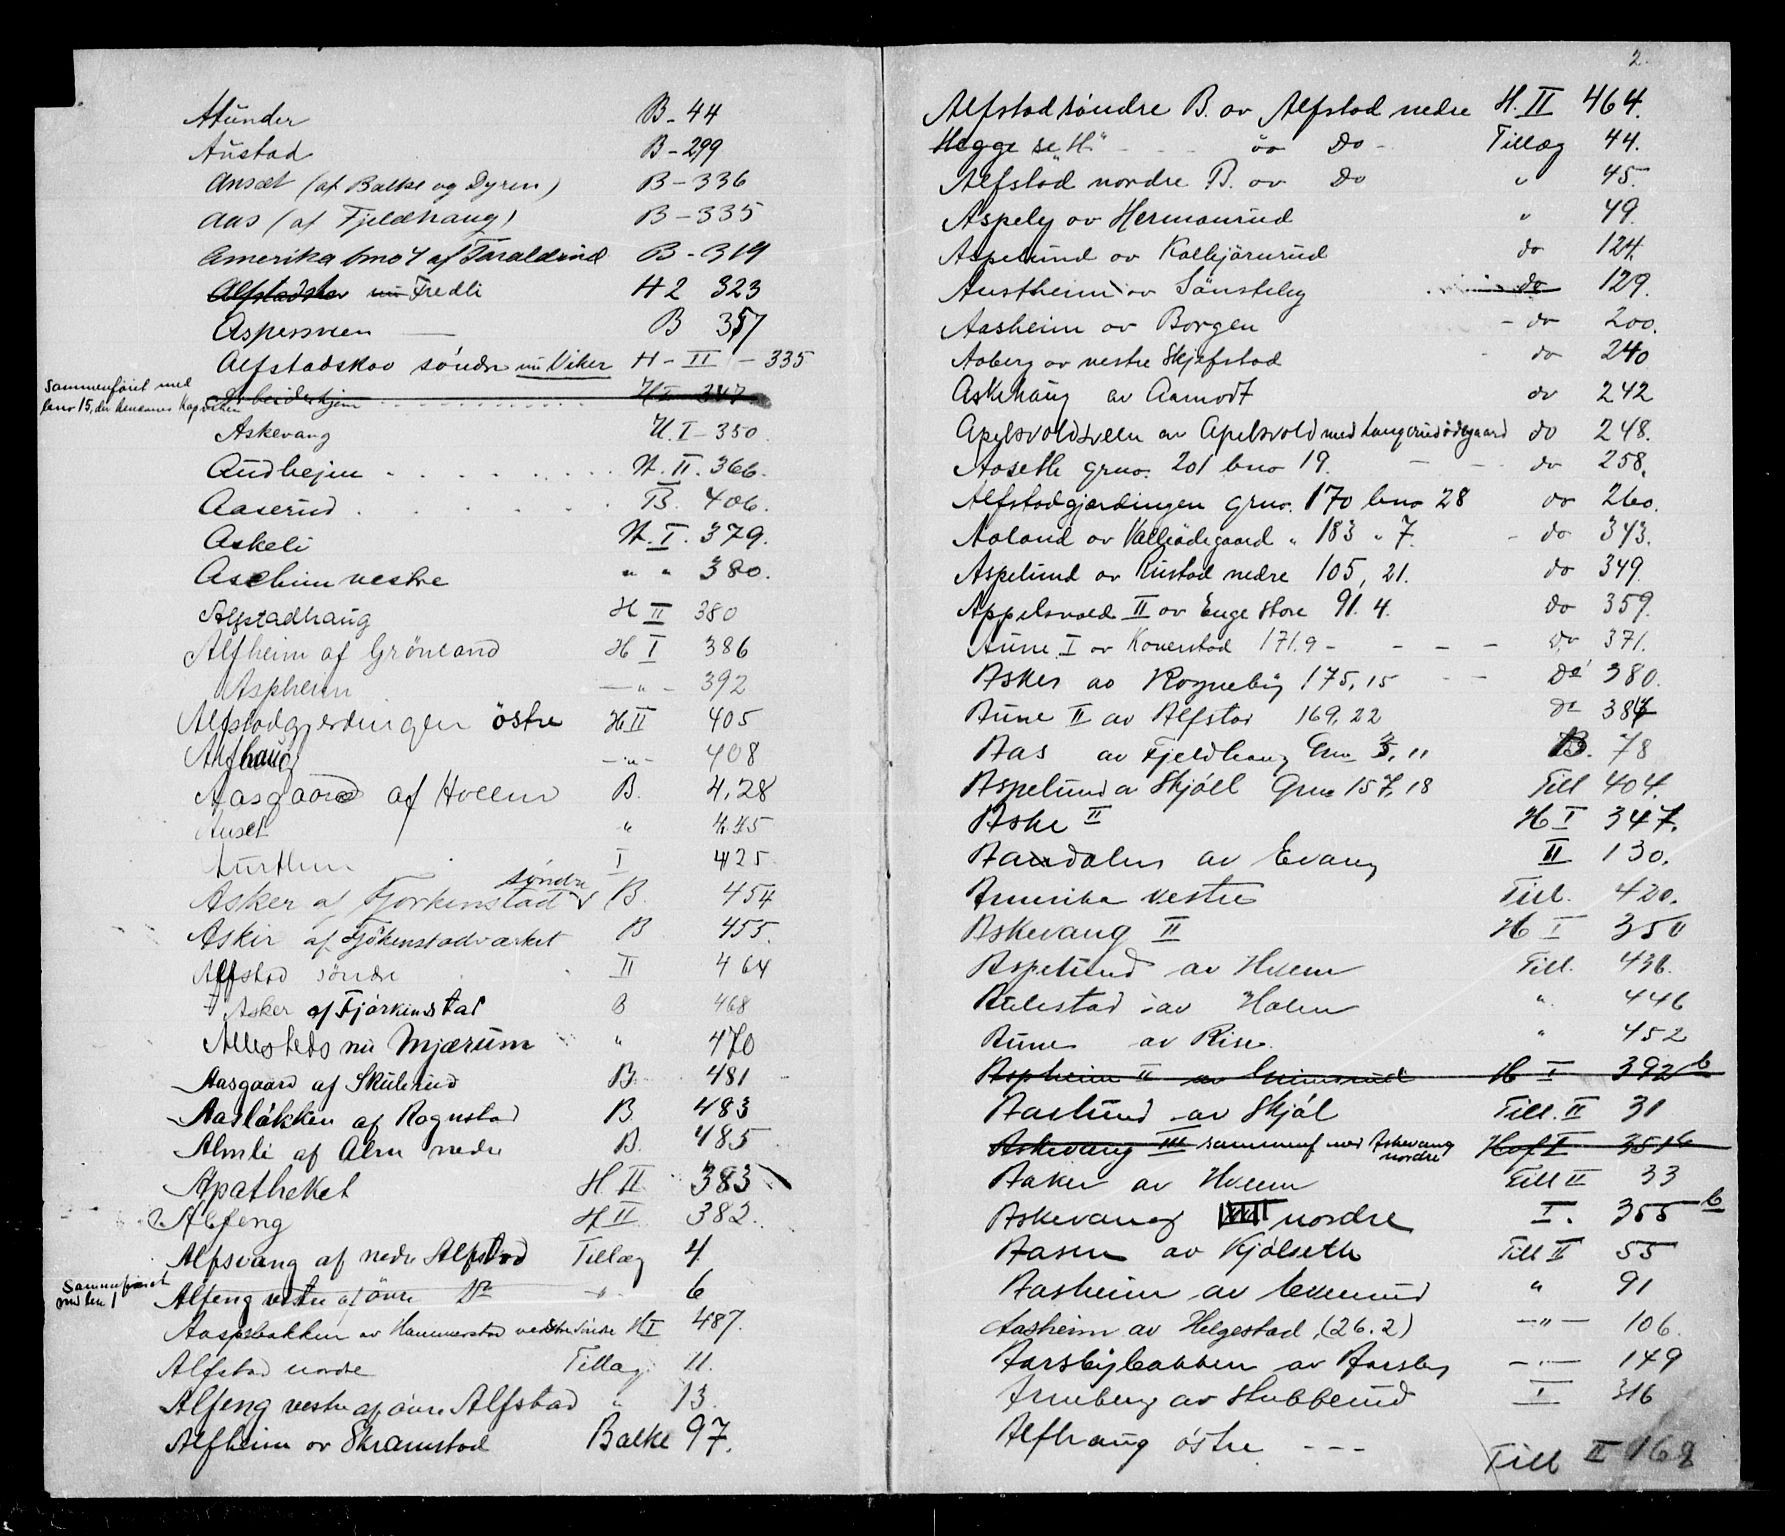 Atunder B-44
Austad B-299
Ansæt (af Balke og Dyren) B-336
Aas (af Fjeldhaug) B-335
Amerika bno 4 af Taraldsrud B-319
Alfstadskov nu Fredli H2 323
Aspersveen B 357
Alfstadskov söndre nu Viker H-II-335
Sammenföiet med
bno 15, der benævnes
Arbeiderhjem H I 347
Askevang H.I-350
Audhejm H.II.366.
Aaserud B. 406.
Askeli H.I. 379.
Aschim vestre " " 380.
Alfstadhaug H II 380
Alfheim af Grönland H I 386
Aspheim -"- 392
Alfstadgjerdingen östre H II 405
Alfhaug -"- 408
Aasgaard af Hveem B. 428
Anset " 445
I 425
Asker af Fjorkenstad söndre B. 454
Asker af Fjökenstadværket B 455.
Alfstad söndre II 464
Asker af Fjörkenstad B 468
Allesteds nu Mjærum " 470
Aasgaard af Skulerud B. 481
Aaslökken af Rognstad B 483
Almli af Alm nedre B. 485
Apotheket H II 383
Alfeng H II 382.
Alfsvang af nedre Alfstad Tillæg 4
Sammenföiet
med bno 1
Alfeng vestre af övre Do " 6
Aaspsbakken av Hammerstad vestre söndre H I 487.
Alfstad nordre Tillæg 11.
Alfeng vestre af övre Alfstad " 13.
Alfheim av Skramstad Balke 97.
2.
Alfstad söndre B. av Alfstad nedre H.II 464.
Hegge se "H" - - - av Do - Tillæg 44.
Alfstad nordre B. av Do " 45.
Aspely av Hermanrud " 49.
Aspelund av Kalbjörnrud do 124.
Austheim av Sönsteby do 129.
Aasheim av Borgen - do 200.
Aaberg av vestre Skjefstad - do 240
Askehaug av Aamodt do 242
Apelsvoldsveen av Apelsvold med Langerudödegaard do 248.
Aaseth grno. 201 bno 19. do 258.
Alfstadgjerdingen grno. 170 bno 28 do 260.
Aaland av Kalbödegaard " 183 " 7. - do 343.
Aspelund av Rustad nedre 105, 21. do 349.
Appelsvold II av Enge Store 91.4. do 359.
Aune I av Konerstad 171.9 - - - - do 371.
Asker av Rogneby 175,15 - - do 380.
Aune II av Alfstad 169,22 do 384
Aas av Fjeldhaug Gno 5, 11 B. 78
Aspelund a Skjöll Gno 157,18 Till 404.
Aske II H I 347.
Aandalen av Evang II 130.
Amerika vestre Till. 420.
Askevang II H I 350
Aspelund av Hveem Till. 436.
Aulestad av Holen " 446
Aune av Rise. " 452
Aspheim II av Grimsrud H I 392b
Aaslund av Skjöl Till. II 31
Askevang III sammenf med Askevang nordre Hof I 351b
Aaker av Hveem Till II 33
Askevang nordre I. 355b
Aasen av Kjölseth Till II 55
Aasheim av Evenrud " 91
Aasheim av Helgestad (26.2) -"- 106.
Aarsbybakken av Aarsby -"- 149
Arneberg av Stubberud I 316
Alfhaug östre - - - Till II 162